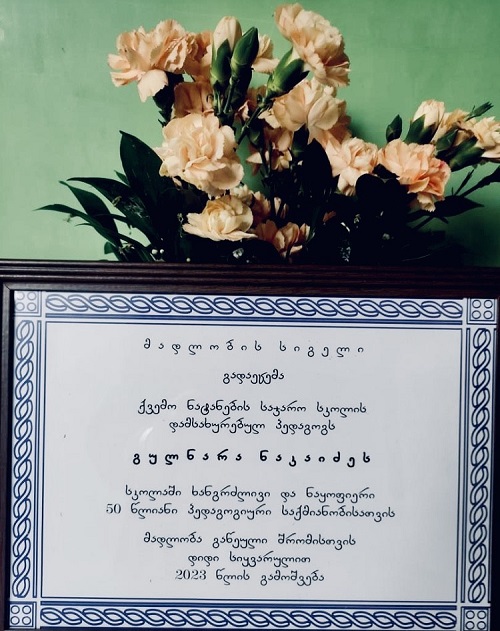 მადლობის სიგელი
გადაეცემა
ქვემო ნატანების საჯარო სკოლის
დამსახურებულ პედაგოგს
გულნარა ნაკაიძეს
სკოლაში ხანგრძლივი და ნაყოფიერი
50 წლიანი პედაგოგიური საქმიანობისათვის
მადლობა განეული შრომისთვის
დიდი სიყვარულით
2023 წლის გამოშვება